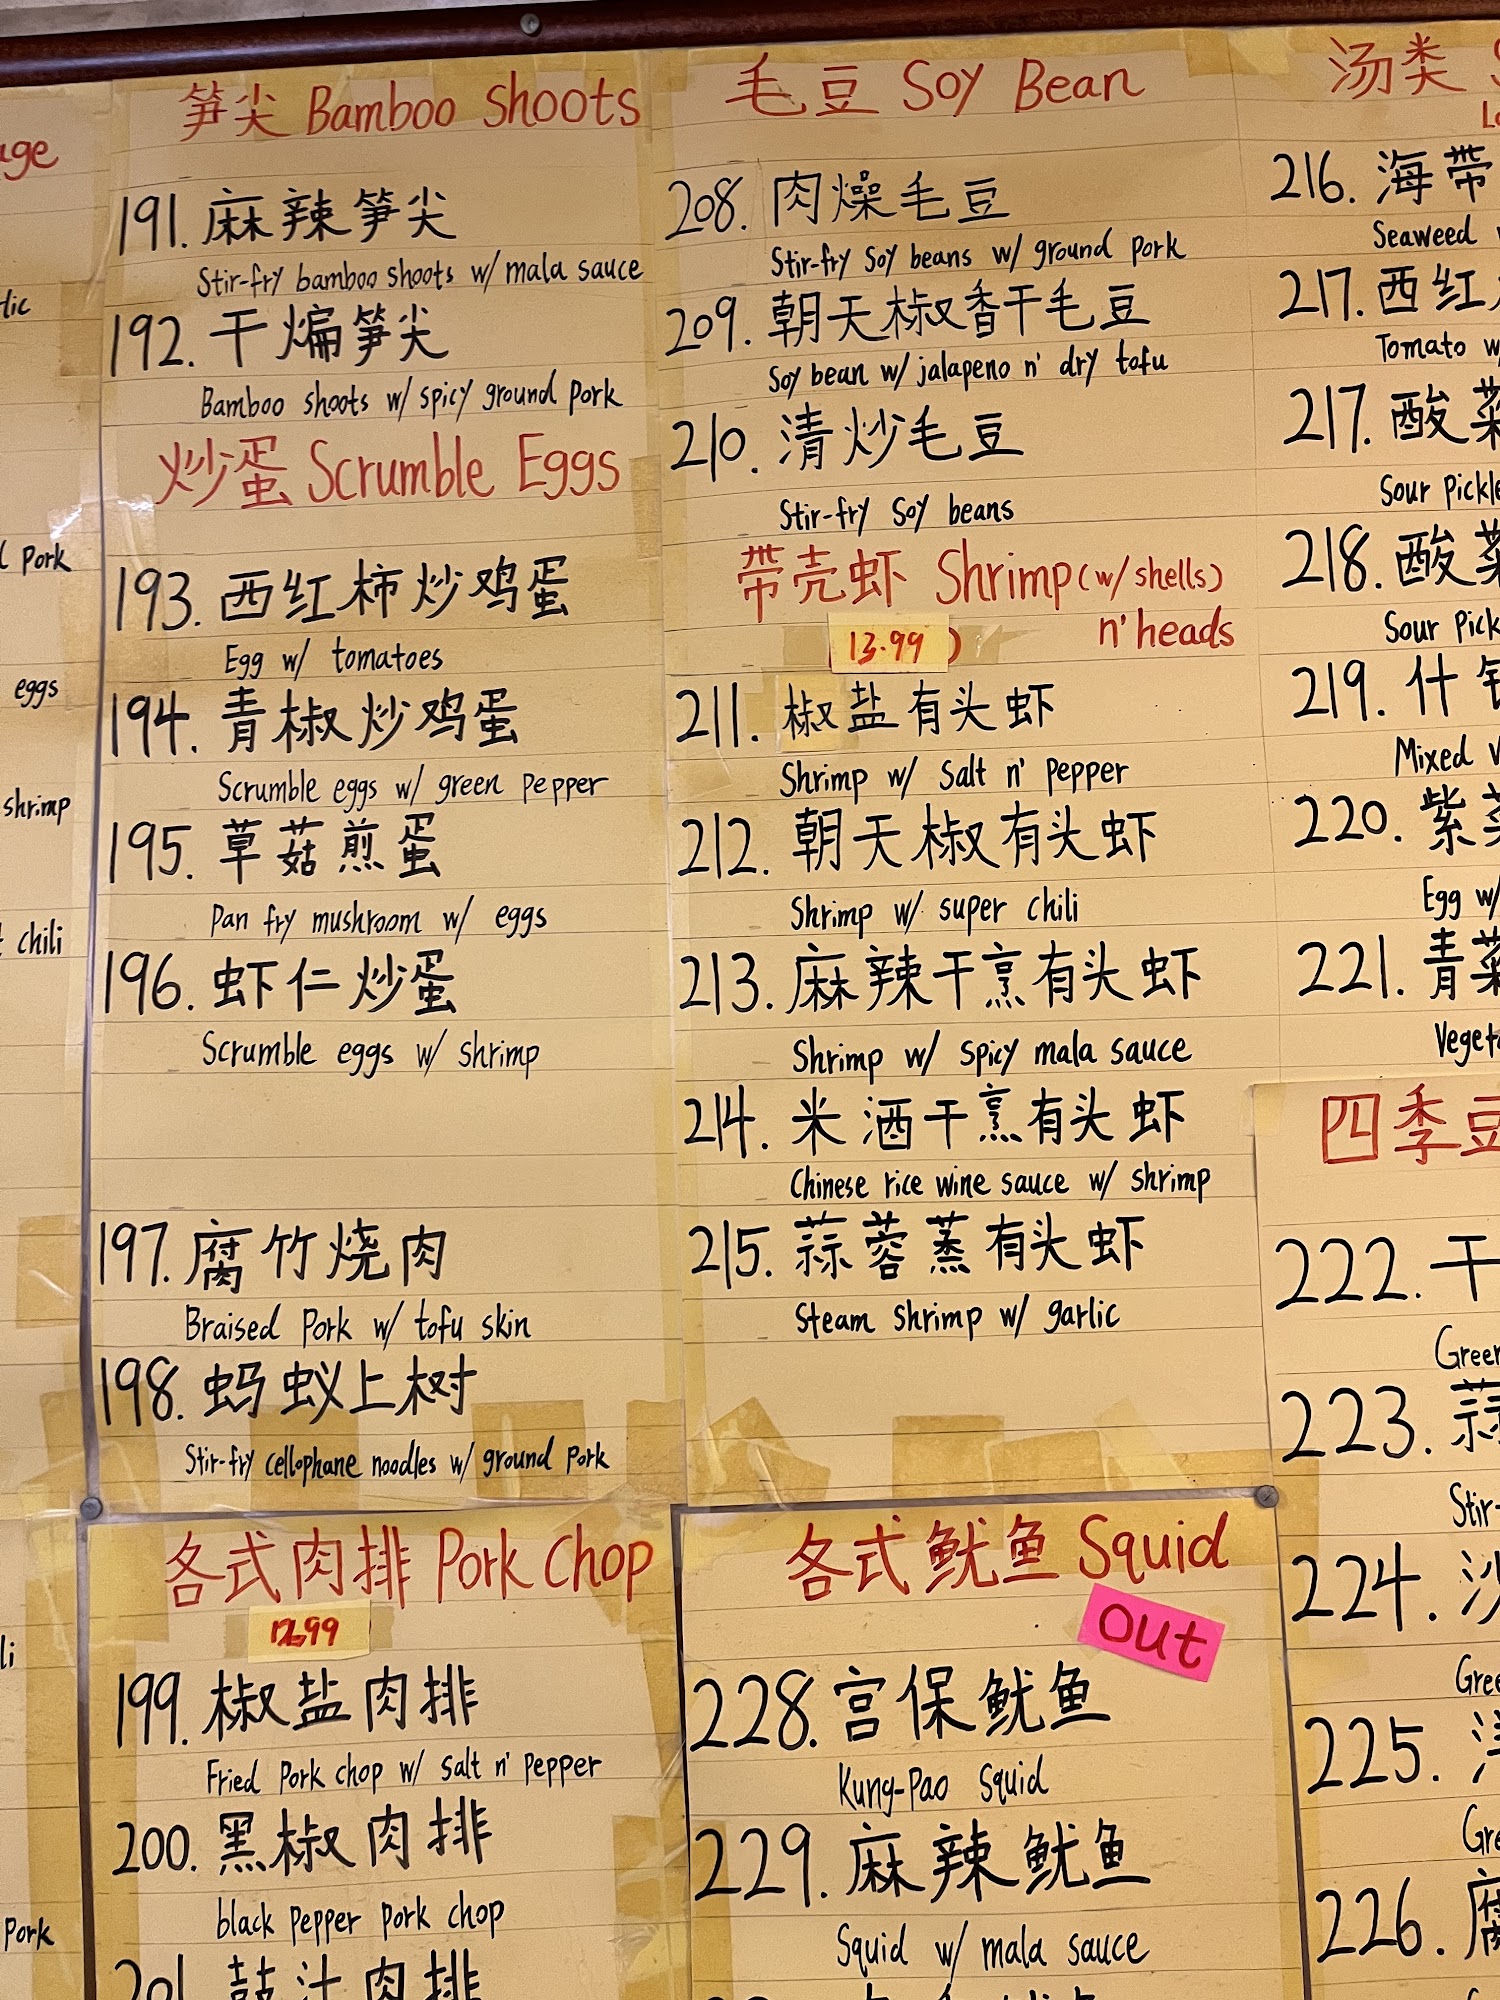 age
lic
l pork
eggs
shrimp
chili
li
pork
笋尖 Bamboo Shoots
191. 麻辣笋尖
Stir-fry bamboo shoots w/ mala sauce
192. 干煸笋尖
Bamboo shoots w/ spicy ground pork
炒蛋 Scrumble Eggs
193. 西红柿炒鸡蛋
Egg w/ tomatoes
194. 青椒炒鸡蛋
Scrumble eggs w/ green pepper
195. 草菇煎蛋
Pan fry mushroom w/ eggs
196. 虾仁炒蛋
Scrumble eggs w/ shrimp
197. 腐竹烧肉
Braised Pork w/ tofu skin
198. 蚂蚁上树
Stir-fry cellophane noodles w/ ground pork
各式肉排 Pork Chop
199. 椒盐肉排
Fried Pork chop w/ salt n' pepper
200. 黑椒肉排
black pepper pork chop
201 豉汁肉排
毛豆 Soy Bean
208. 肉燥毛豆
Stir-fry Soy beans w/ ground pork
209. 朝天椒香干毛豆
Soy bean w/ jalapeno n' dry tofu
210. 清炒毛豆
Stir-fry Soy beans
带壳虾 Shrimp (w/ shells)
n' heads
13.99
211. 椒盐有头虾
Shrimp w/ salt n' pepper
212. 朝天椒有头虾
Shrimp w/ super chili
213. 麻辣干烹有头虾
Shrimp w/ spicy mala sauce
214. 米酒干烹有头虾
Chinese rice wine sauce w/ shrimp
215. 蒜蓉蒸有头虾
Steam shrimp w/ garlic
各式鱿鱼 Squid
Out
228. 宫保鱿鱼
Kung-Pao Squid
229. 麻辣鱿鱼
Squid w/ mala sauce
汤类
216. 海带
Seaweed
217. 西红
Tomato w/
217. 酸菜
Sour Pickle
218. 酸菜
Sour Pick
219. 什
Mixed
220. 紫菜
Egg w/
221. 青菜
Veget
四季豆
222. 干
Green
223. 蒜
Stir-
224. 沙
Gree
225.
Gre
226. 腐